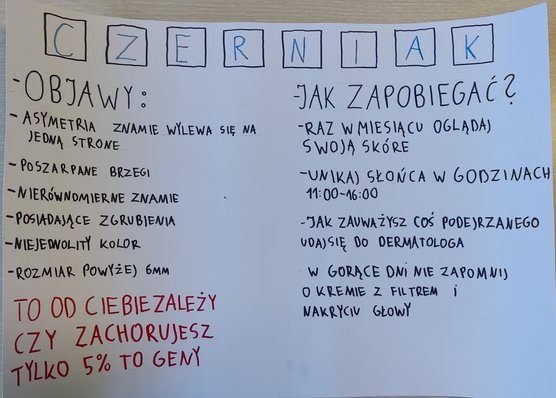 CZERNIAK
-OBJAWY:
- ASYMETRIA ZNAMIE WYLEWA SIĘ NA
JEDNĄ STRONE
- POSZARPANE BRZEGI
- NIERÓWNOMIERNE ZNAMIE
-POSIADAJĄCE ZGRUBIENIA
-NIEJEDNOLITY KOLOR
-ROZMIAR POWYŻEJ 6MM
TO OD CIEBIE ZALEŻY
CZY ZACHORUJESZ
TYLKO 5% TO GENY
-JAK ZAPOBIEGAĆ?
-RAZ W MIESIĄCU OGLĄDAJ
SWOJĄ SKÓRE
-UNIKAJ SŁOŃCA W GODZINACH
11:00-16:00
-JAK ZAUWAŻYSZ COŚ PODEJRZANEGO
UDAJ SIĘ DO DERMATOLOGA
W GORĄCE DNI NIE ZAPOMNIJ
O KREMIE Z FILTREM i
NAKRYCIU GŁOWY